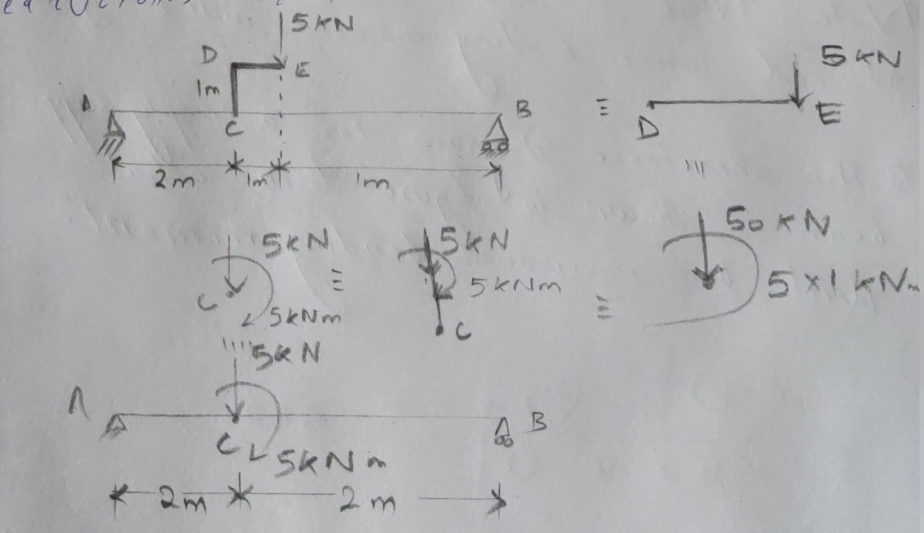 5kN
D
E
1m
A
C
B
2m
1m
1m
≡
5kN
D
E
5kN
C
5kNm
≡
5kN
5kNm
C
≡
50kN
5×1 kNm
5kN
A
C
B
5kNm
2m
2m